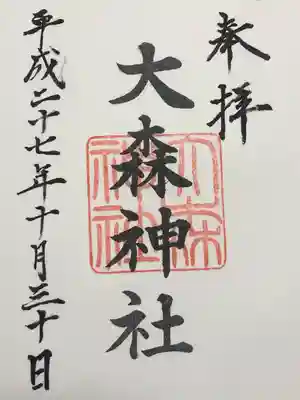 奉拝
大森神社
大森神社
平成二十七年十月三十日